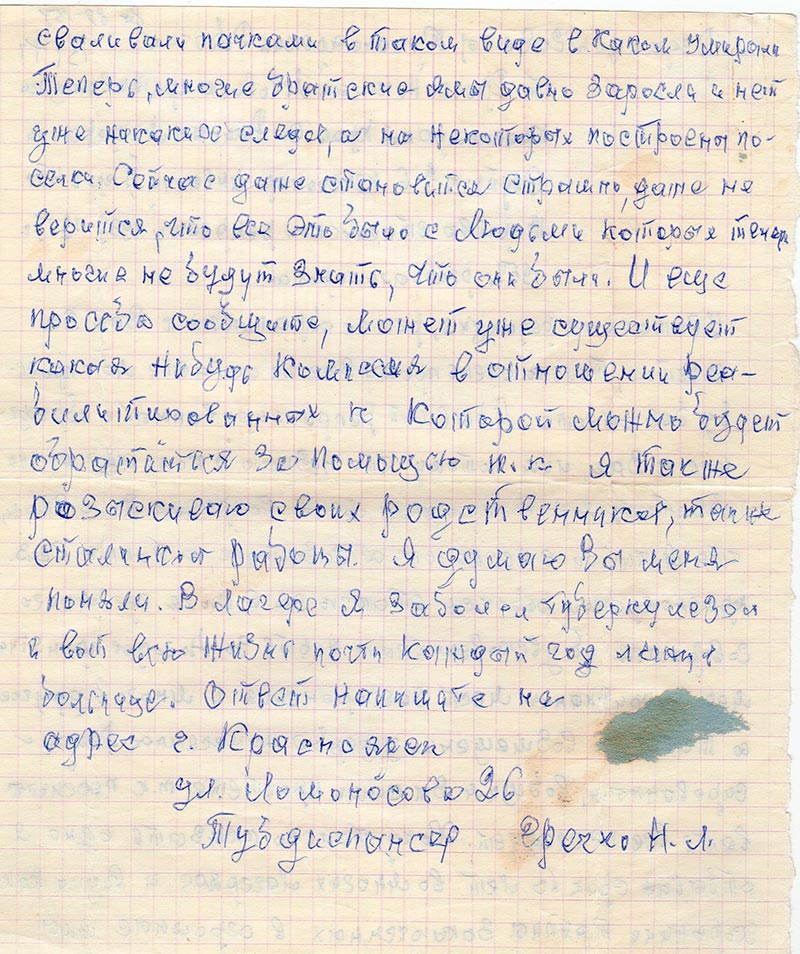 сваливали пачками в таком виде в каком умирали
Теперь, многие братские ямы давно заросли и нет
уже никаких следов, а на некоторых построены по-
селки. Сейчас даже становится страшно, даже не
верится, что все это было с людьми которые теперь
многие не будут знать, что они были. И еще
просьба сообщите, может уже существует
какая нибудь комиссия в отношении реа-
билитированных к которой можно будет
обратиться за помощью т.к. я также
розыскиваю своих родственников, также
сталинской работы. Я думаю Вы меня
поняли. В лагере я заболел туберкулезом
и вот всю жизнь почти каждый год лежу в
больнице. Ответ напишите на
адрес г. Красноярск
ул. Ломоносова 26
Тубдиспансер Гречко Н.Л.